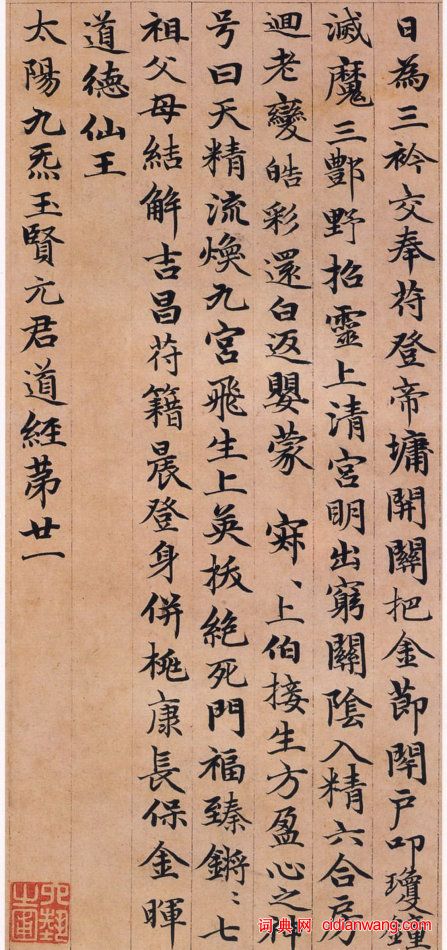 日為三衿交奉苻登帝墉開關把金節開戶叩瓊鍾
滅魔三酆野招靈上清宮明出窮關陰入精六合房
迴老變皓彩還白返嬰蒙　上伯接生方盈心之神
号曰天精流煥九宮飛生上英拔絕死門福臻鏘〻七
祖父母結解吉昌苻籍晨登身併桃康長保金暉
道德仙王
太陽九炁玉賢元君道經苐廿一
词典网 cidianwang.com